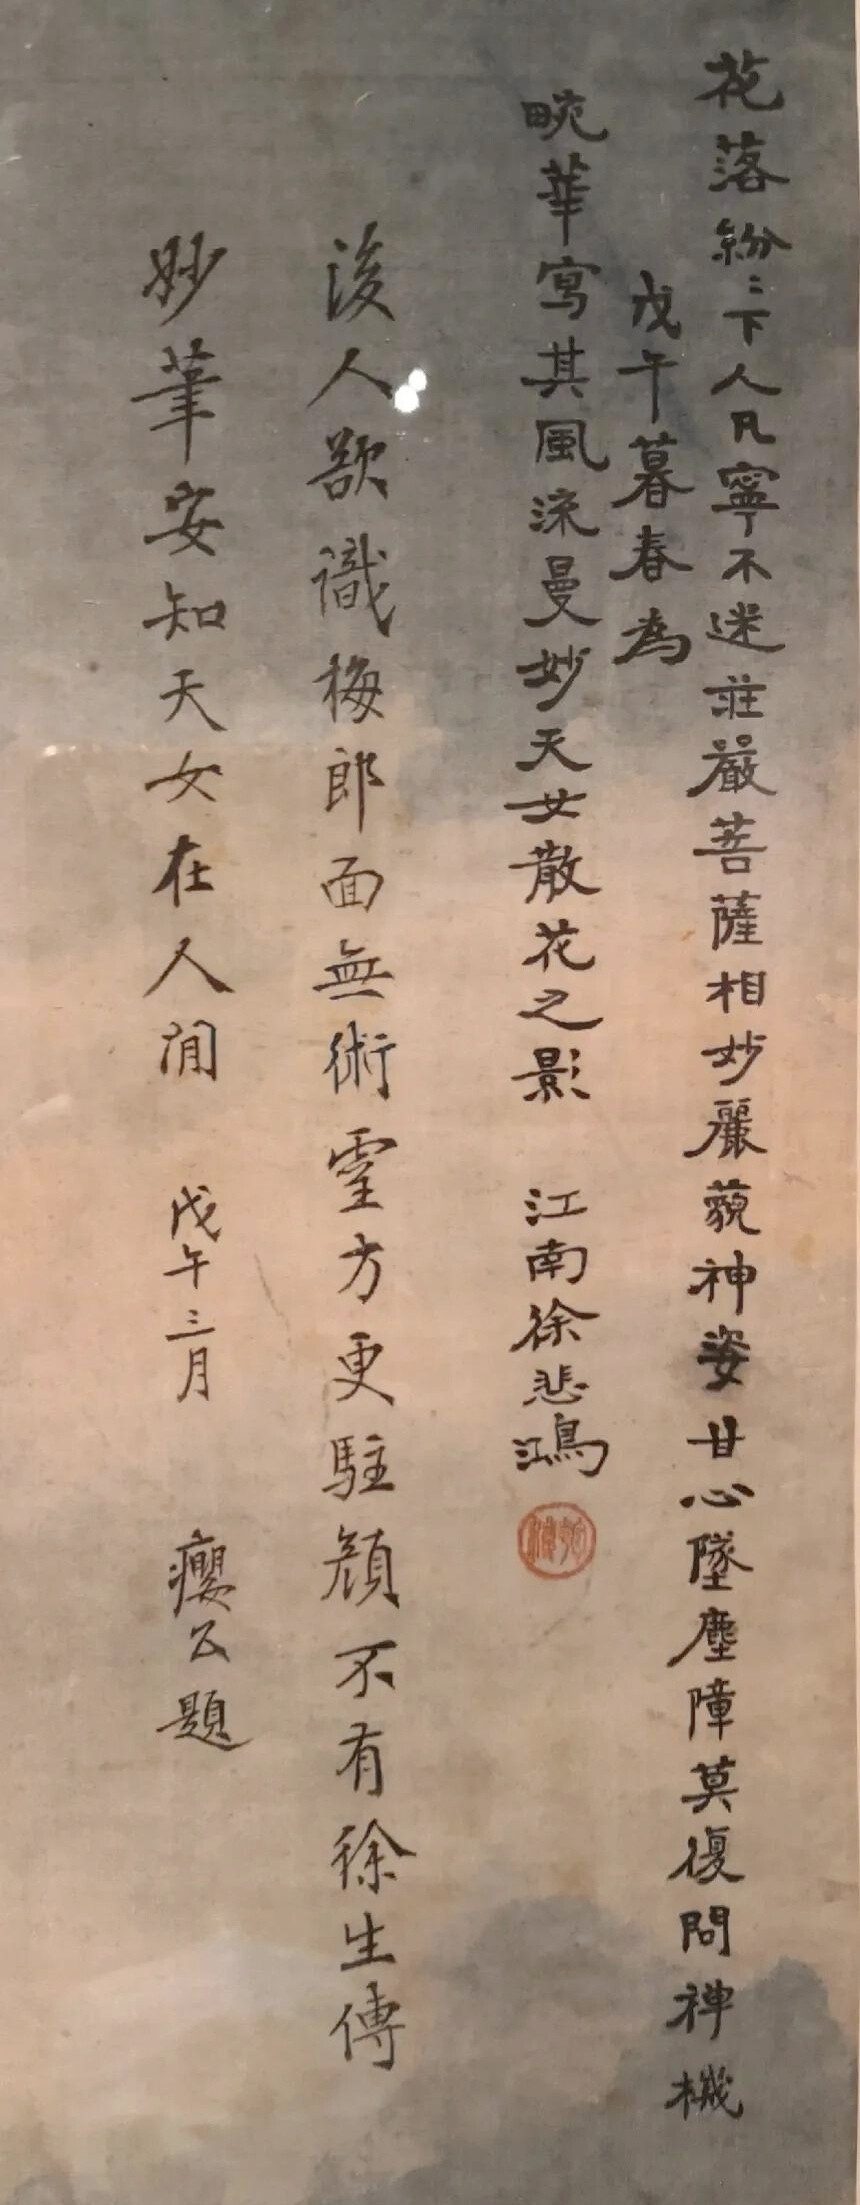 花落紛〻下人凡寧不迷莊嚴菩薩相妙麗藐神姿甘心墜塵障莫復問禪機
戊午暮春為
畹華寫其風流曼妙天女散花之影 江南徐悲鴻
後人欲識梅郎面無術靈方更駐顏不有徐生傳
妙筆安知天女在人間 戊午三月 癭公題